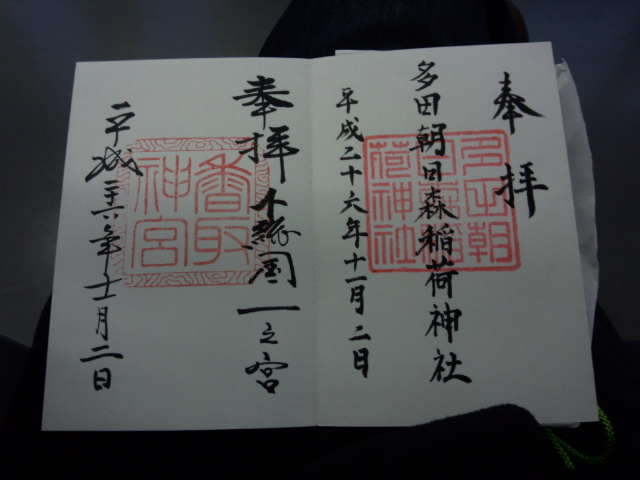 奉拝
多田朝日森稲荷神社
多田朝日森稲荷神社
平成二十六年十一月二日
奉拝
下総国一之宮
香取神宮
平成二十六年十一月二日